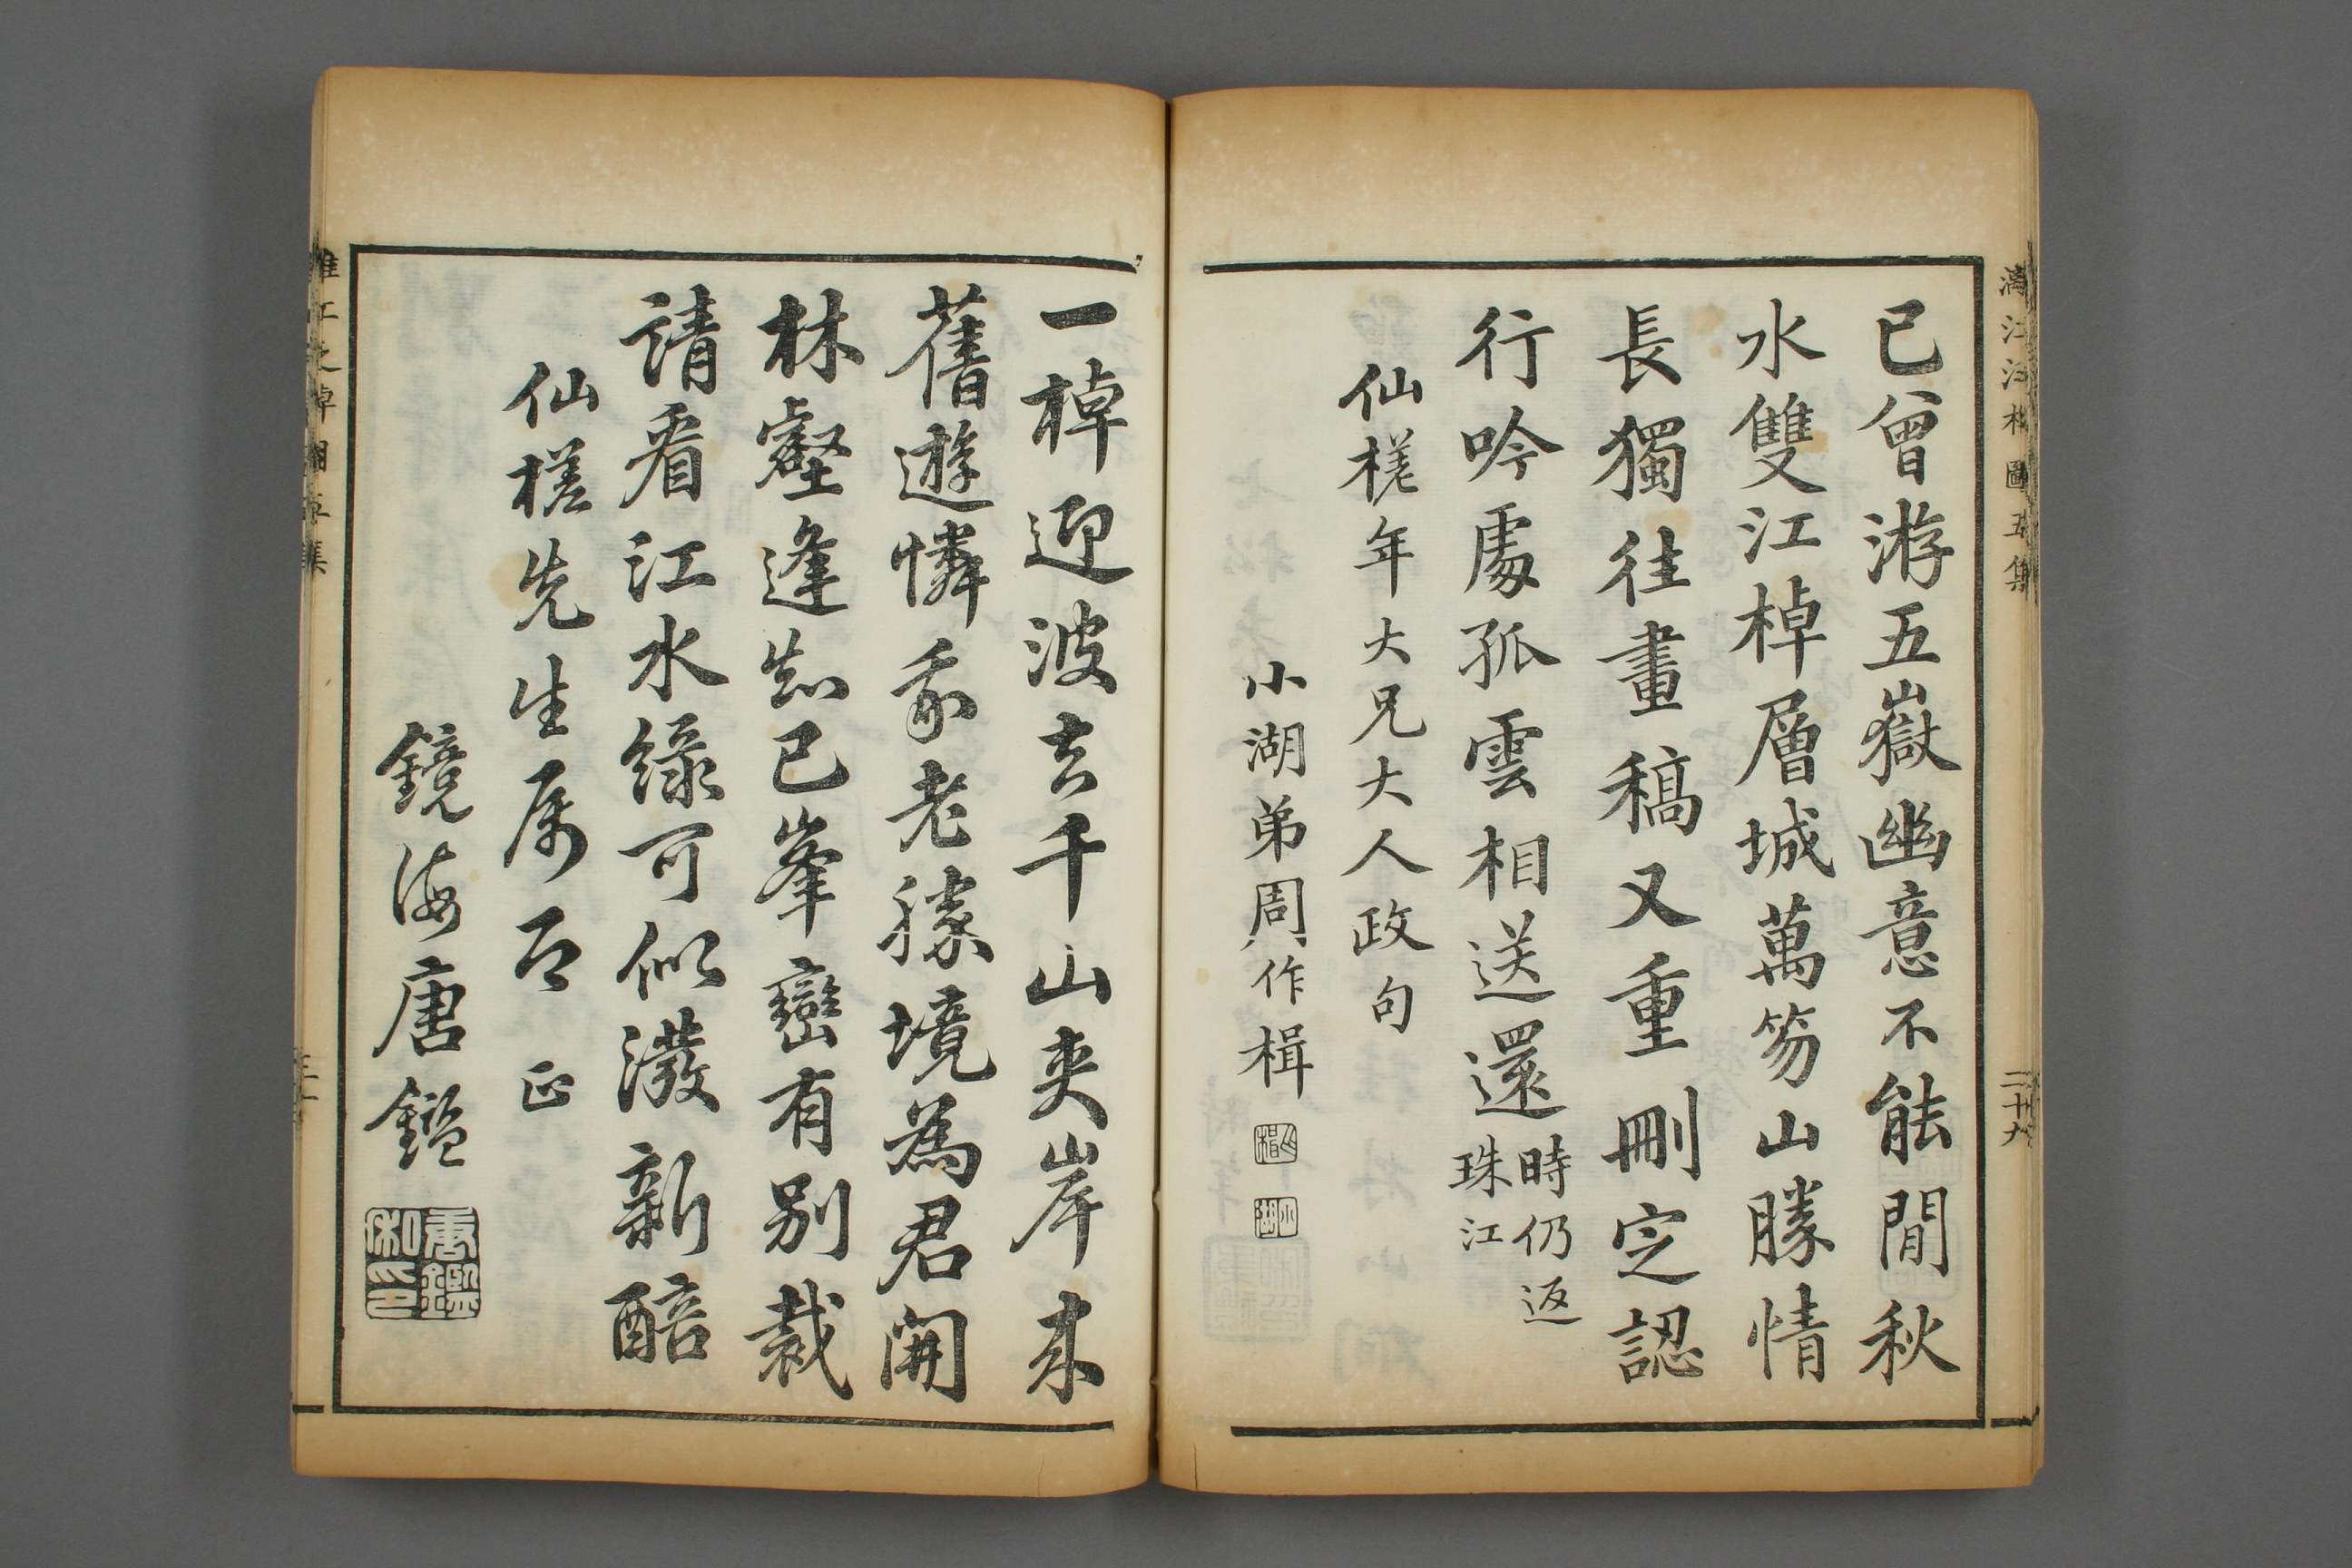 已曾游五嶽幽意不能閒秋
水雙江棹層城萬笏山勝情
長獨往畫稿又重刪定認
行吟處孤雲相送還時仍返
珠江
仙槎年大兄大人政句
小湖弟周作楫
二十六
一棹迎波去千山夾岸來
舊遊憐我老勝境為君開
林壑逢知己峯巒有別裁
請看江水綠可似潑新醅
仙槎先生属即正
鏡海唐鑑
唐鑑
私印